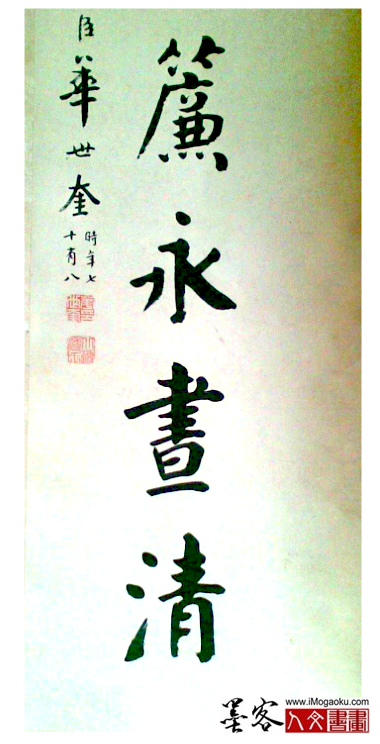 簾永晝清
臣華世奎
時年七
十有八
www.iMogaoku.com
墨客
人文書畫